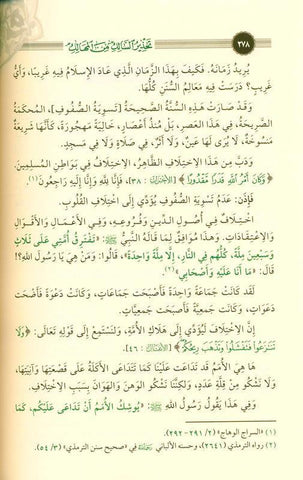 ٢٧٨ تحذير السالك من المهالك
يُرِيدُ زَمَانَهُ. فَكَيْفَ بِهَذَا الزَّمَانِ الَّذِي عَادَ الإِسْلَامُ فِيهِ غَرِيبًا، وَأَيُّ
غَرِيبٍ؟ دَرَسَتْ فِيهِ مَعَالِمُ السُّنَنِ كُلُّهَا.
وَقَدْ صَارَتْ هَذِهِ السُّنَّةُ الصَّحِيحَةُ [تَسْوِيَةُ الصُّفُوفِ]، المُحْكَمَةُ
الصَّرِيحَةُ، فِي هَذَا العَصْرِ، بَلْ مُنْذُ أَعْصَارٍ، خَالِيَةً مَهْجُورَةً، كَأَنَّهَا شَرِيعَةٌ
مَنْسُوخَةٌ، لَا يُرَى لَهَا عَيْنٌ، وَلَا أَثَرٌ، إِلَّا مَا شَاءَ اللَّهُ.
وَدَبَّ مِنْ هَذَا الِاخْتِلَافِ الظَّاهِرِ، الِاخْتِلَافُ فِي بَوَاطِنِ المُسْلِمِينَ.
﴿وَكَانَ أَمْرُ اللَّهِ قَدَرًا مَقْدُورًا﴾ [الأحزاب : ٣٨]، فَإِنَّا لِلَّهِ وَإِنَّا إِلَيْهِ رَاجِعُونَ»(١).
فَإِذَن: عَدَمُ تَسْوِيَةِ الصُّفُوفِ يُؤَدِّي إِلَى اخْتِلَافِ القُلُوبِ.
اخْتِلَافٌ فِي أُصُولِ الدِّينِ وَفُرُوعِهِ، وَفِي الأَعْمَالِ وَالأَقْوَالِ
وَالِاعْتِقَادَاتِ. وَهَذَا مُوَافِقٌ لِمَا قَالَهُ النَّبِيُّ ﷺ: «تَفْتَرِقُ أُمَّتِي عَلَى ثَلَاثٍ
وَسَبْعِينَ مِلَّةً، كُلُّهُمْ فِي النَّارِ، إِلَّا مِلَّةً وَاحِدَةً»، قَالُوا: وَمَنْ هِيَ يَا رَسُولَ اللهِ؟!
قَالَ: «مَا أَنَا عَلَيْهِ وَأَصْحَابِي»(٢).
لَقَدْ كَانَتْ جَمَاعَةً وَاحِدَةً فَأَصْبَحَتْ جَمَاعَاتٍ، وَكَانَتْ دَعْوَةً فَأَضْحَتْ
دَعَوَاتٍ، وَكَانَتْ جَمْعِيَّةً فَأَصْبَحَتْ جَمْعِيَّاتٍ.
إِنَّ الِاخْتِلَافَ لَيُؤَدِّي إِلَى هَلَاكِ الأُمَّةِ، وَلْنَسْتَمِعْ إِلَى قَوْلِهِ تَعَالَى: ﴿وَلَا
تَنَازَعُوا فَتَفْشَلُوا وَتَذْهَبَ رِيحُكُمْ﴾ [الأنفال : ٤٦].
هَا هِيَ الأُمَمُ قَدْ تَدَاعَتْ عَلَيْنَا كَمَا تَتَدَاعَى الأَكَلَةُ عَلَى قَصْعَتِهَا وَآنِيَتِهَا،
وَلَا نَشْكُو مِنْ قِلَّةِ عَدَدٍ، وَلَكِنَّنَا نَشْكُو الوَهَنَ وَالهَوَانَ بِسَبَبِ الِاخْتِلَافِ.
وَفِي هَذَا يَقُولُ رَسُولُ اللهِ ﷺ: «يُوشِكُ الأُمَمُ أَنْ تَدَاعَى عَلَيْكُمْ، كَمَا
(١) «السراج الوهاج» (٢/ ٢٩١-٢٩٢).
(٢) رواه الترمذي (٢٦٤١)، وحسنه الألباني رحمه الله في «صحيح سنن الترمذي» (٣/ ٥٤).